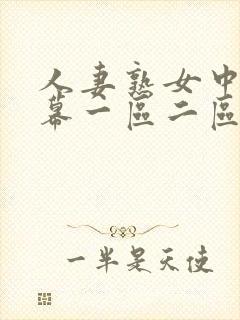 人妻熟女中
幕一區二區
一半是天使